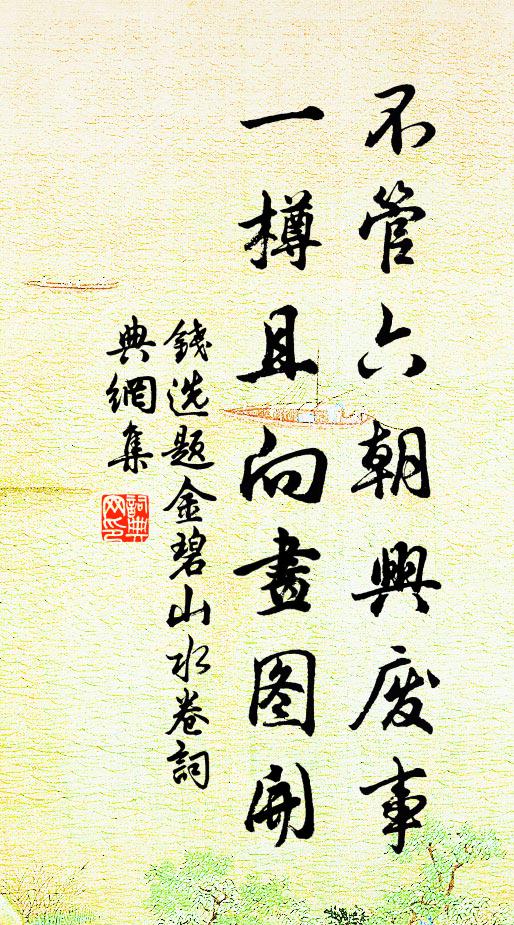 不管六朝興废事
一樽且向畫图開
錢选题金碧山水卷詞
典網集
詞典
网印